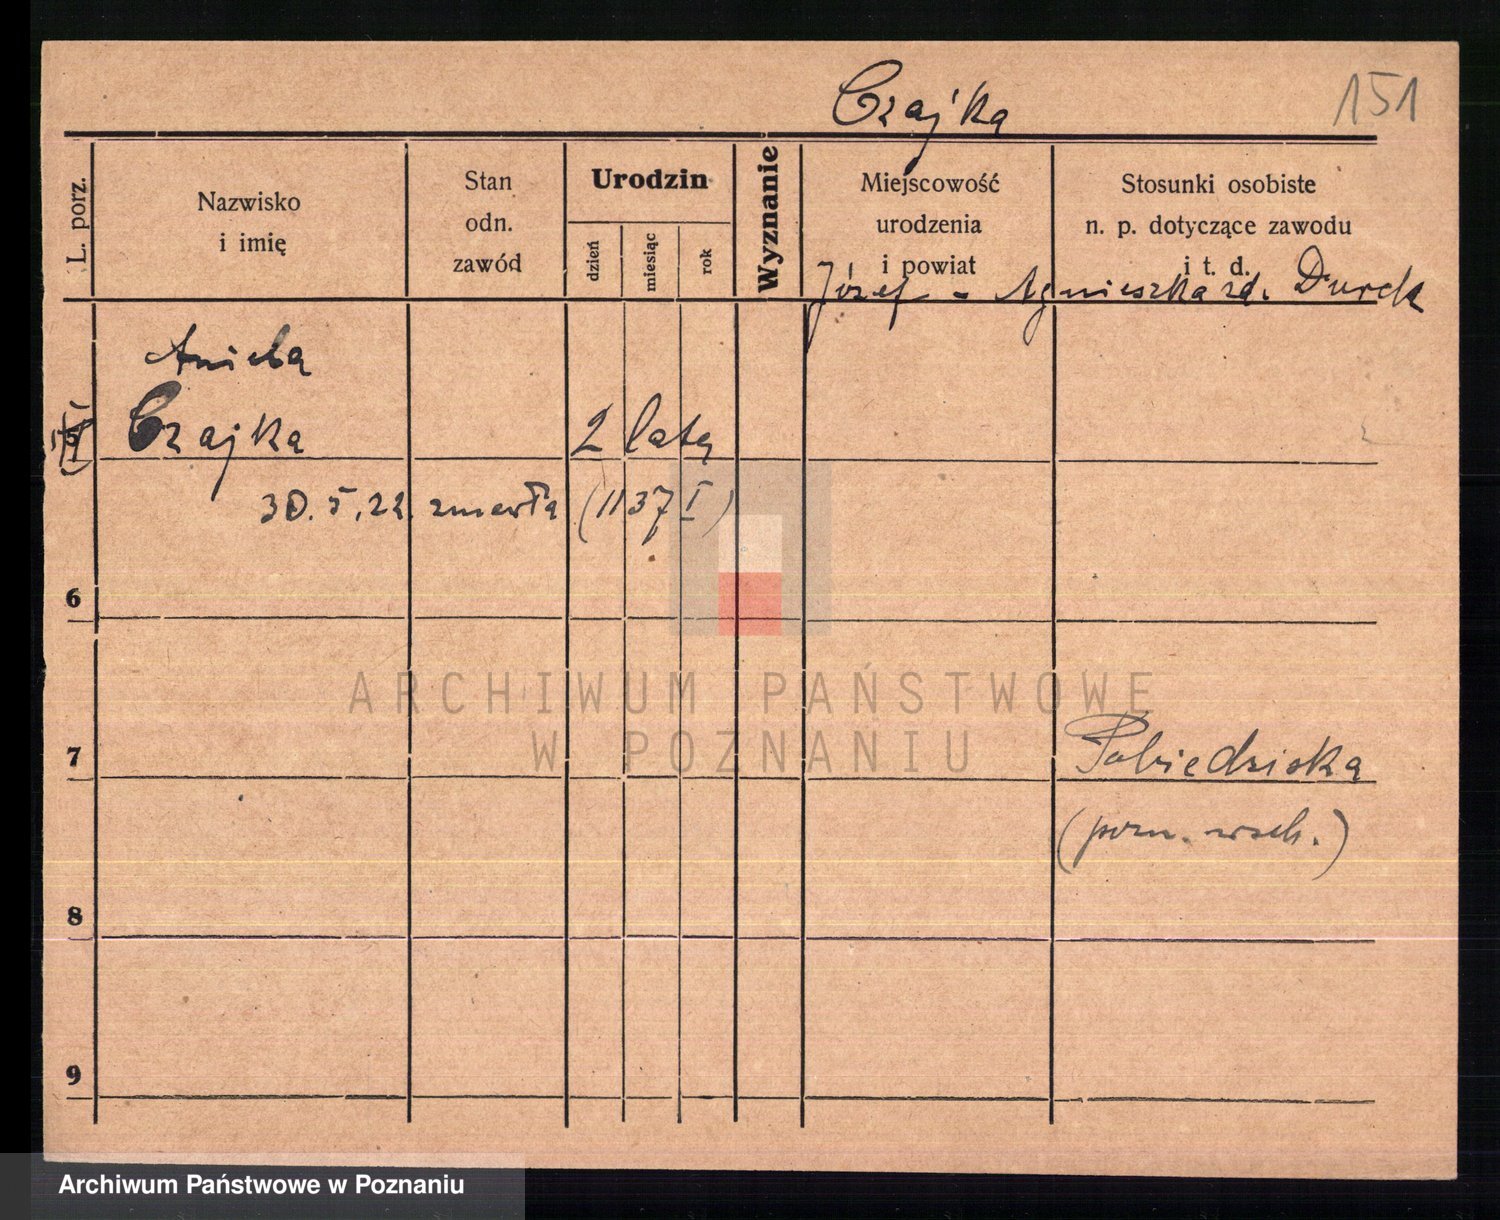 Czajka
151
L. porz.
Nazwisko
i imię
Stan
odn.
zawód
Urodzin
dzień
miesiąc
rok
Wyznanie
Miejscowość
urodzenia
i powiat
Stosunki osobiste
n. p. dotyczące zawodu
i t. d.
Józef - Agnieszka zd. Durek
Aniela
5 Czajka 2 lata
30.5.22. zmarła (1137 I)
6
ARCHIWUM PAŃSTWOWE
W POZNANIU
7 Pobiedziska
(pozn. wsch.)
8
9
Archiwum Państwowe w Poznaniu